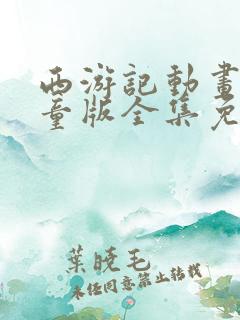 西游記動畫
童版全集免
葉曉毛
未經同意禁止轉載